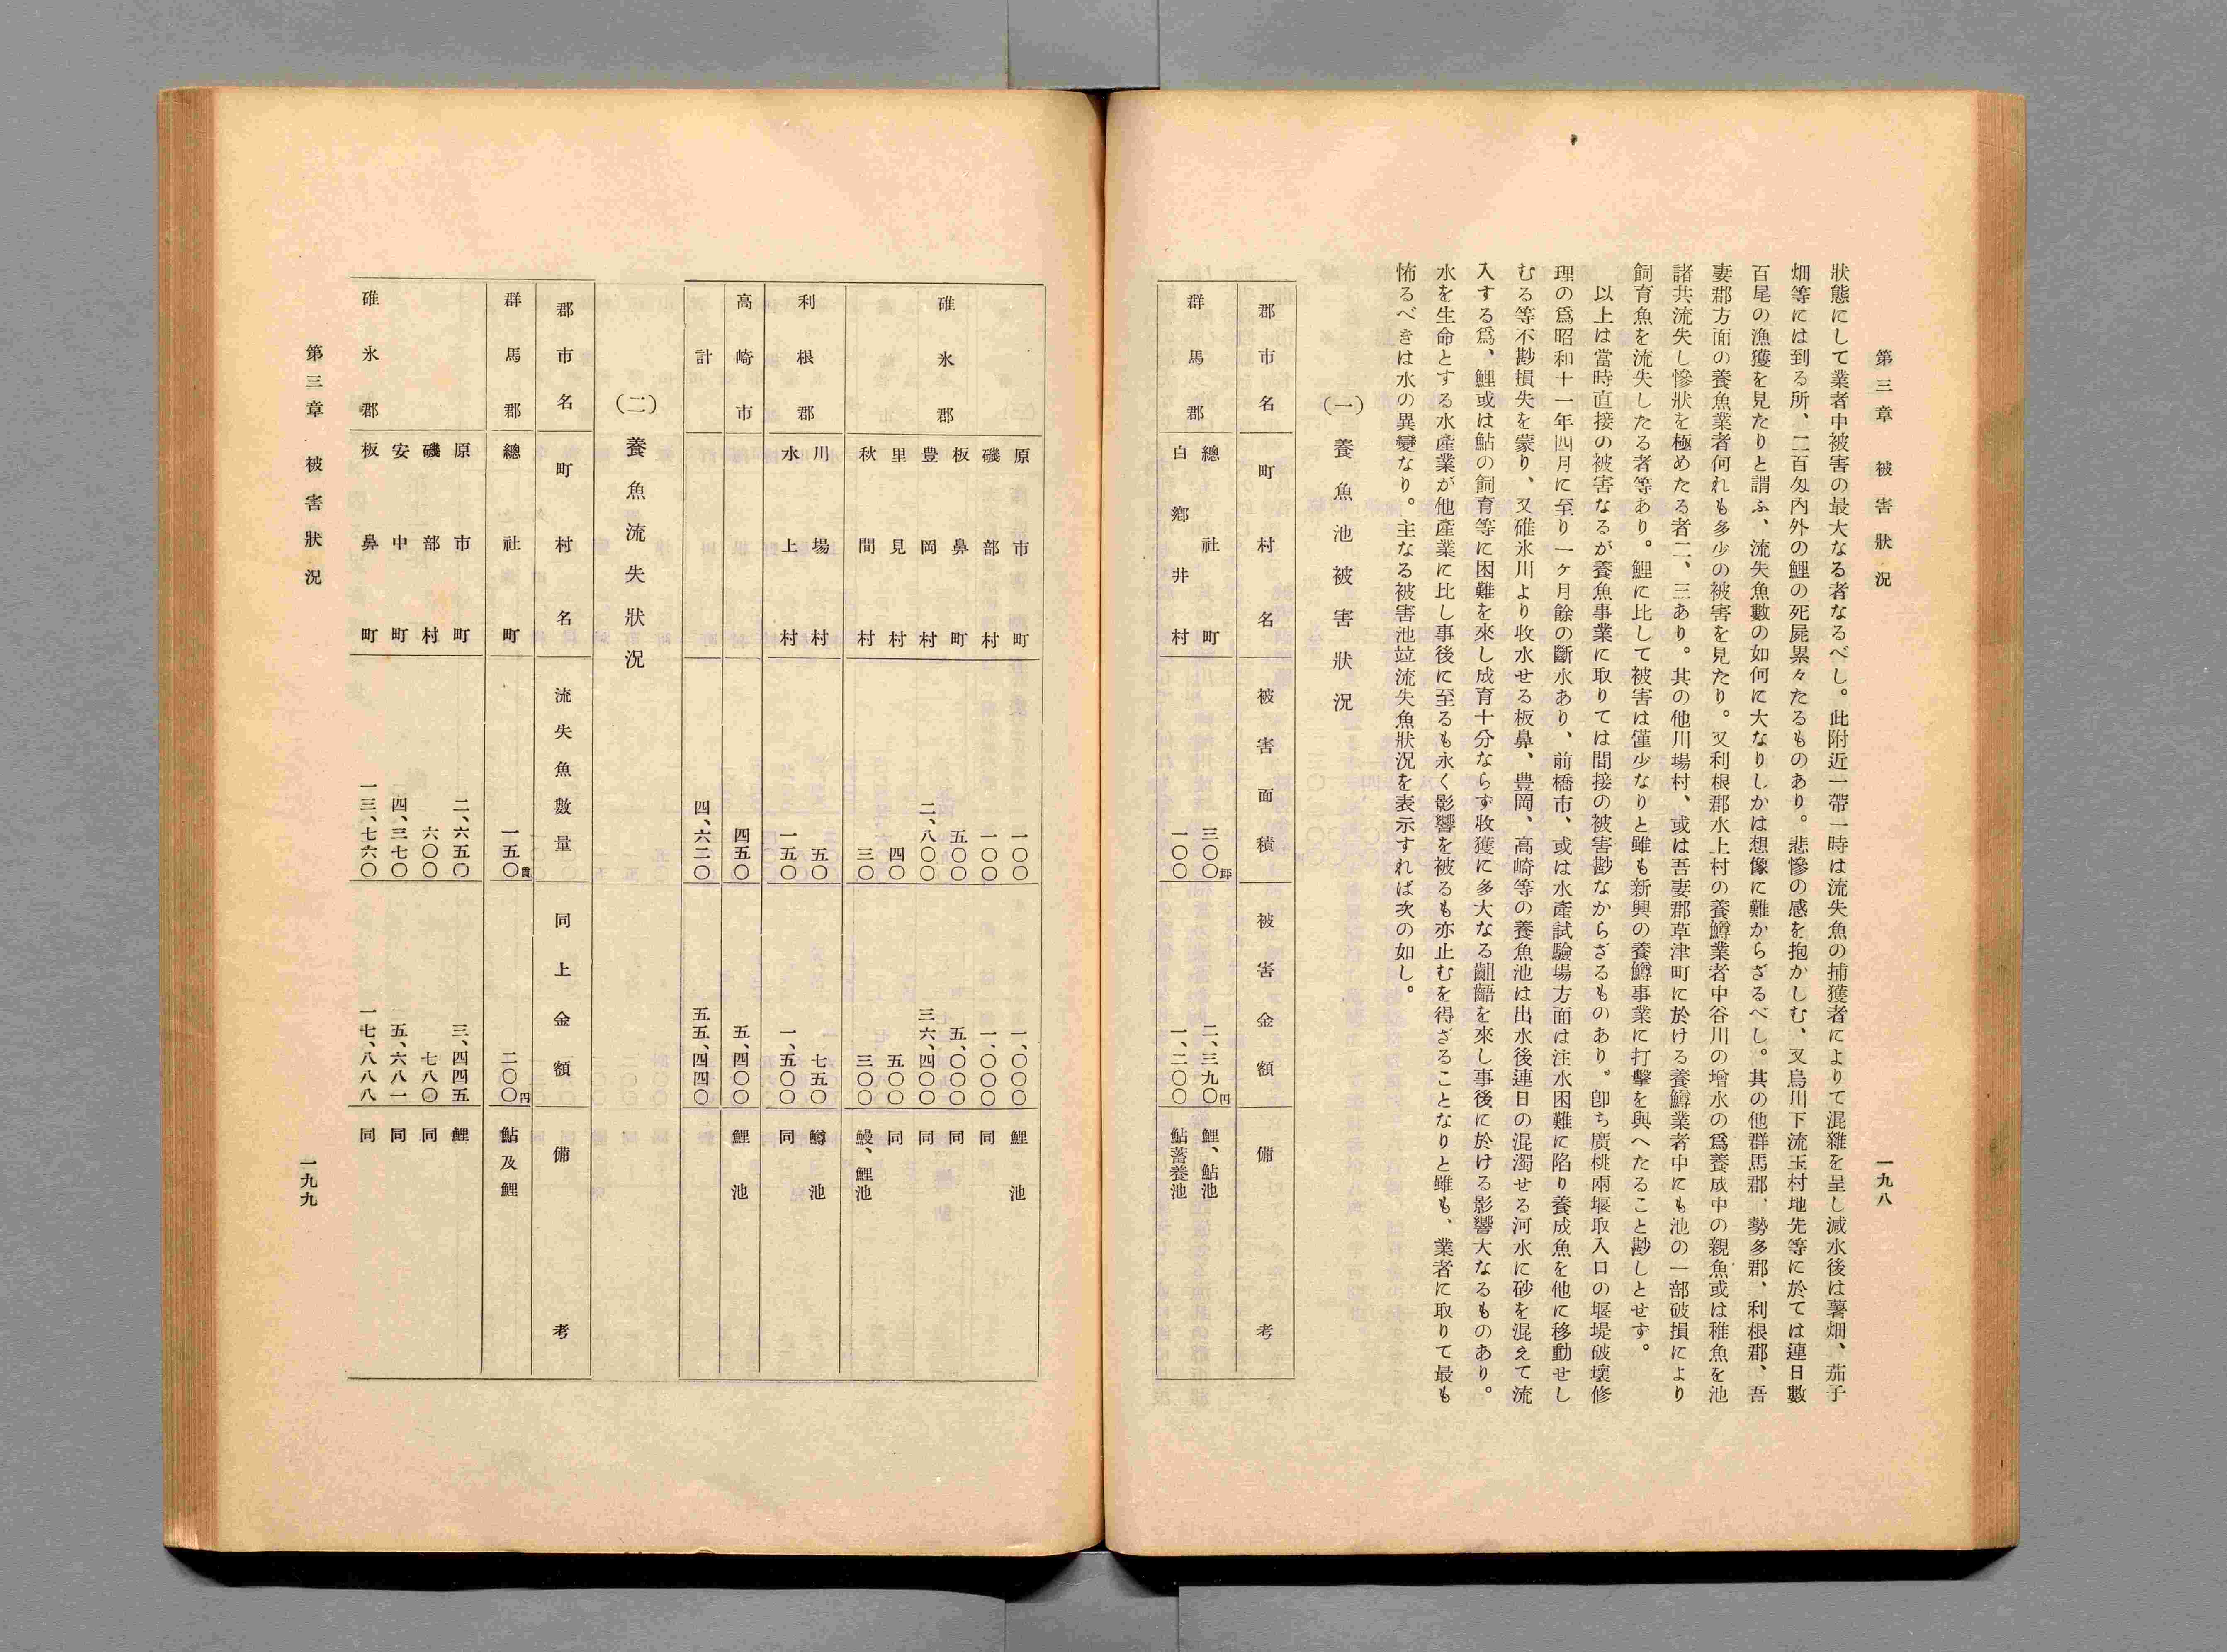 第三章 被害狀況 一九八
狀態にして業者中被害の最大なる者なるべし。此附近一帶一時は流失魚の捕獲者によりて混雜を呈し減水後は薯畑、茄子
畑等には到る所、二百匁內外の鯉の死屍累々たるものあり。悲慘の感を抱かしむ、又烏川下流玉村地先等に於ては連日數
百尾の漁獲を見たりと謂ふ、流失魚數の如何に大なりしかは想像に難からざるべし。其の他群馬郡、勢多郡、利根郡、吾
妻郡方面の養魚業者何れも多少の被害を見たり。又利根郡水上村の養鱒業者中谷川の增水の爲養成中の親魚或は稚魚を池
諸共流失し慘狀を極めたる者二、三あり。其の他川場村、或は吾妻郡草津町に於ける養鱒業者中にも池の一部破損により
飼育魚を流失したる者等あり。鯉に比して被害は僅少なりと雖も新興の養鱒事業に打擊を與へたること尠しとせず。
以上は當時直接の被害なるが養魚事業に取りては間接の被害尠なからざるものあり。卽ち廣桃兩堰取入口の堰堤破壞修
理の爲昭和十一年四月に至り一ヶ月餘の斷水あり、前橋市、或は水產試驗場方面は注水困難に陷り養成魚を他に移動せし
むる等不尠損失を蒙り、又碓氷川より收水せる板鼻、豊岡、高崎等の養魚池は出水後連日の混濁せる河水に砂を混えて流
入する爲、鯉或は鮎の飼育等に困難を來し成育十分ならず收獲に多大なる齟齬を來し事後に於ける影響大なるものあり。
水を生命とする水產業が他產業に比し事後に至るも永く影響を被るも亦止むを得ざることなりと雖も、業者に取りて最も
怖るべきは水の異變なり。主なる被害池竝流失魚狀況を表示すれば次の如し。
(一) 養魚池被害狀況
郡市名 町村名 被害面積 被害金額 備考
群馬郡 總社町 三〇〇坪 二、三九〇円 鯉、鮎池
白鄕井村 一〇〇 一、二〇〇 鮎蓄養池
碓氷郡 原市町 一〇〇 一、〇〇〇 鯉池
磯部村 一〇〇 一、〇〇〇 同
板鼻町 五〇〇 五、〇〇〇 同
豊岡村 二、八〇〇 三六、四〇〇 同
里見村 四〇 五〇〇 同
秋間村 三〇 三〇〇 鰻、鯉池
利根郡 川場村 五〇 七五〇 鱒池
水上村 一五〇 一、五〇〇 同
高崎市 四五〇 五、四〇〇 鯉池
計 四、六二〇 五五、四四〇
(二) 養魚流失狀況
郡市名 町村名 流失魚數量 同上金額 備考
群馬郡 總社町 一五〇貫 二〇〇円 鮎及鯉
碓氷郡 原市町 二、六五〇 三、四四五 鯉
磯部村 六〇〇 七八〇 同
安中町 四、三七〇 五、六八一 同
板鼻町 一三、七六〇 一七、八八八 同
第三章 被害狀況 一九九